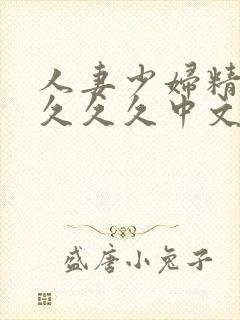 人妻少婦精
久久久中文
盛唐小兔子